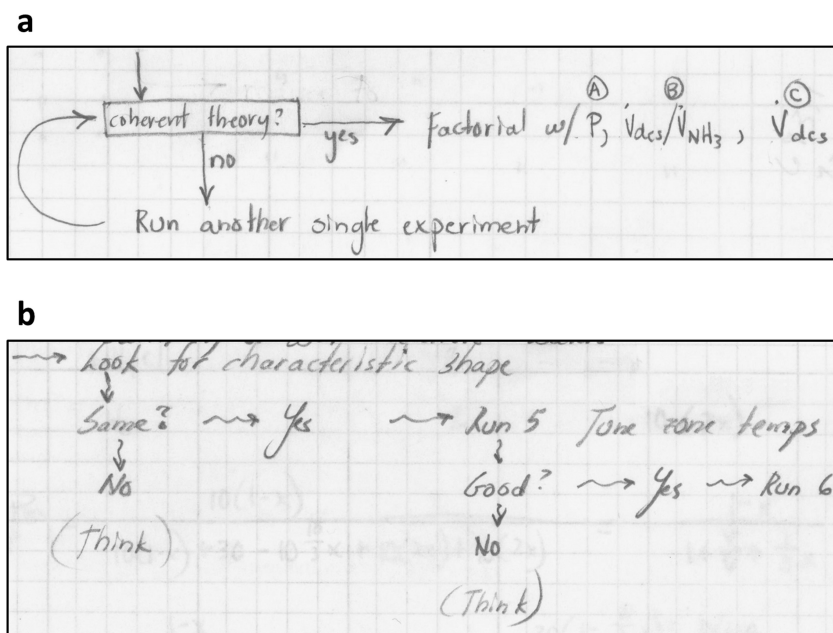 a
Ⓐ Ⓑ Ⓒ
coherent theory? yes Factorial w/ P, V̇dcs/V̇NH3, V̇dcs
no
Run another single experiment
b
Look for characteristic shape
Same? Yes Run 5 Tune zone temps
No Good? Yes Run 6
(Think) No
(Think)